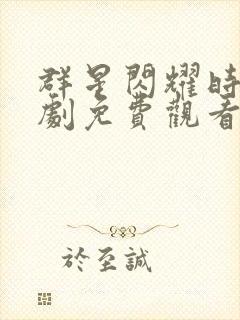 群星閃耀時
劇免費觀看
於至誠